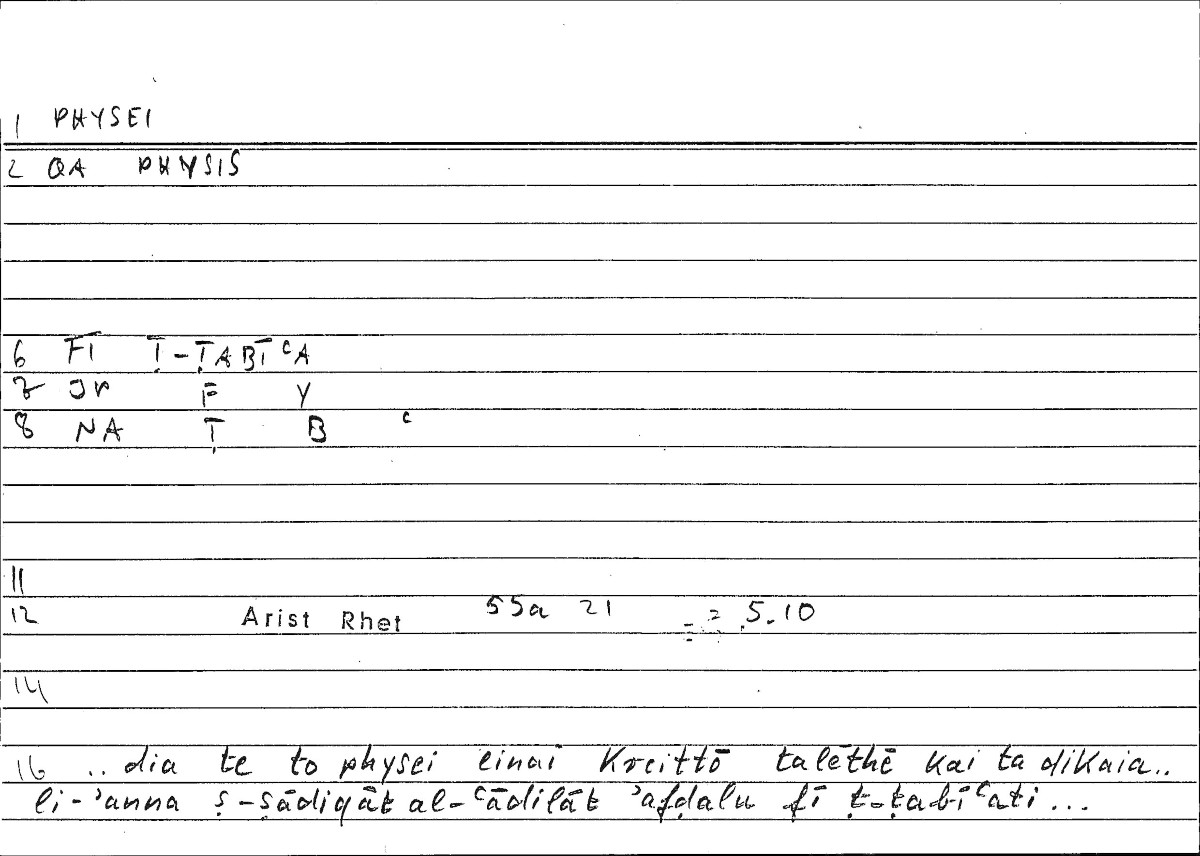 1 PHYSEI
2 QA PHYSIS
6 FĪ Ṭ-ṬABĪʿA
7 JR F Y
8 NA Ṭ B ʿ
11
12 Arist Rhet 55a 21 = 5.10
14
16 .. dia te to physei einai Kreittō talēthē kai ta dikaia..
li-ʾanna ṣ-ṣādiqāt al-ʿādilāt ʾafḍalu fī ṭ-ṭabīʿati...